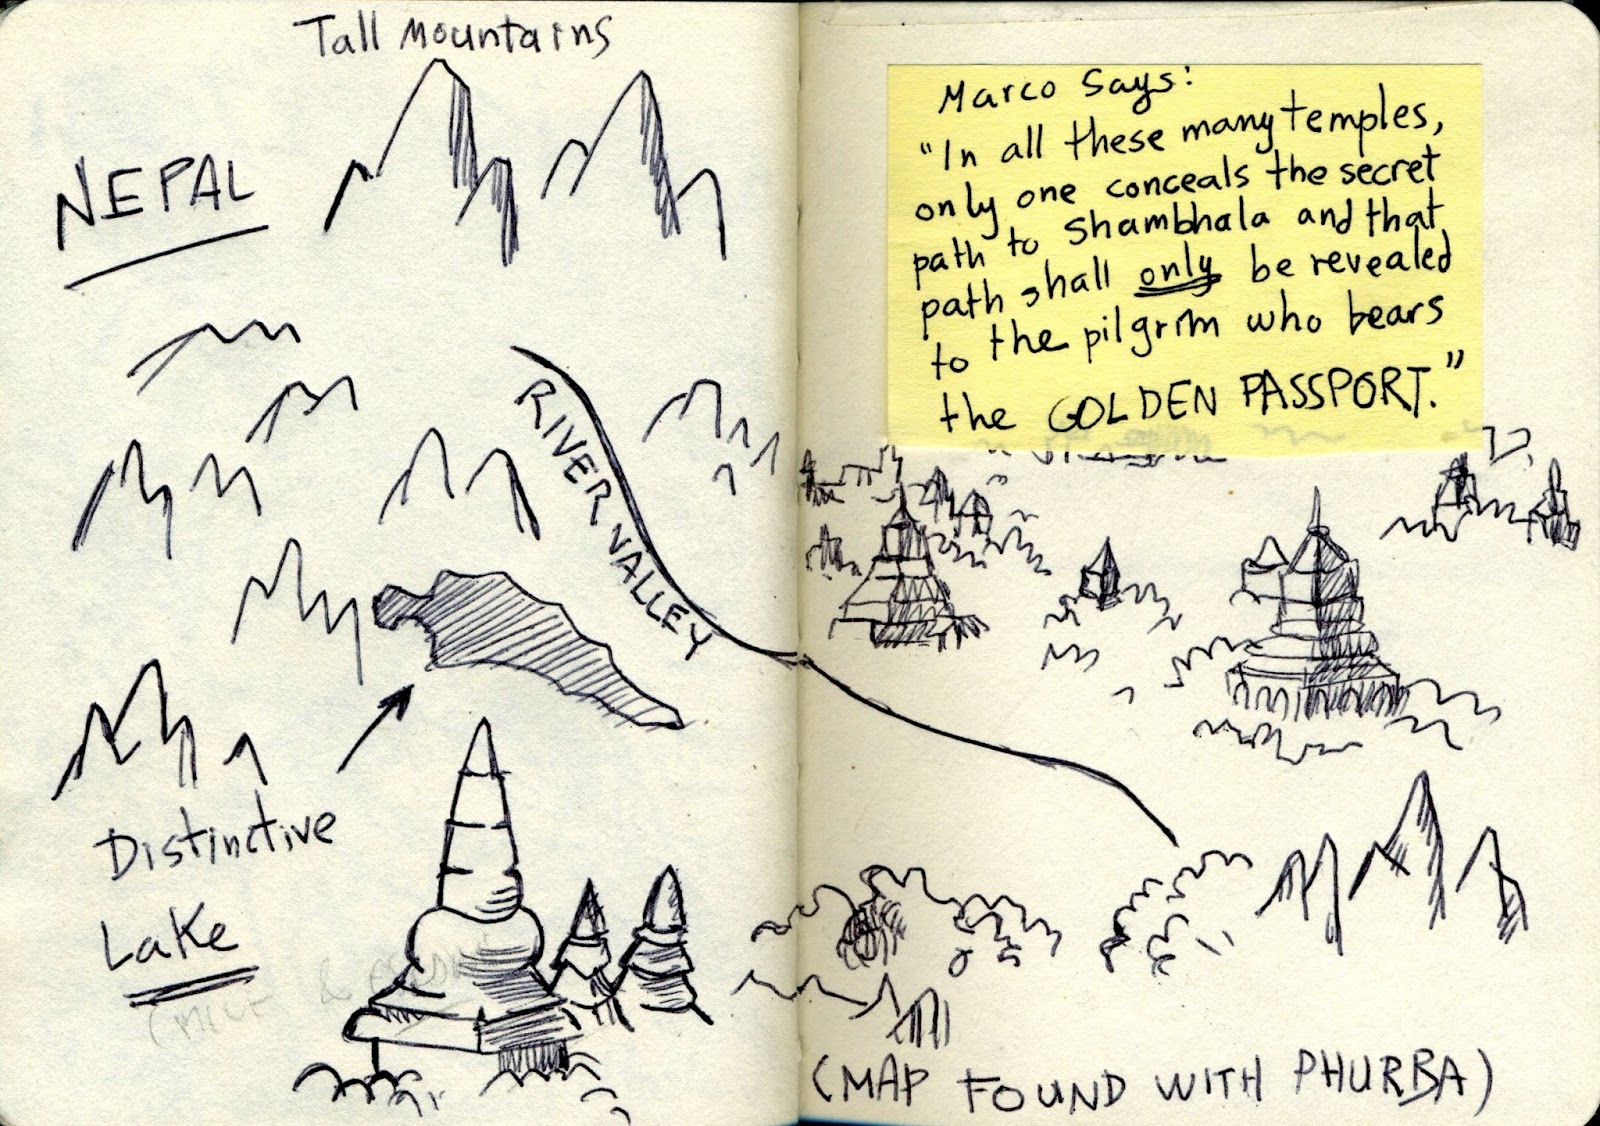 Tall Mountains
NEPAL
RIVER VALLEY
Distinctive
Lake
Marco Says:
"In all these many temples,
only one conceals the secret
path to Shambhala and that
path shall only be revealed
to the pilgrim who bears
the GOLDEN PASSPORT."
(MAP FOUND WITH PHURBA)